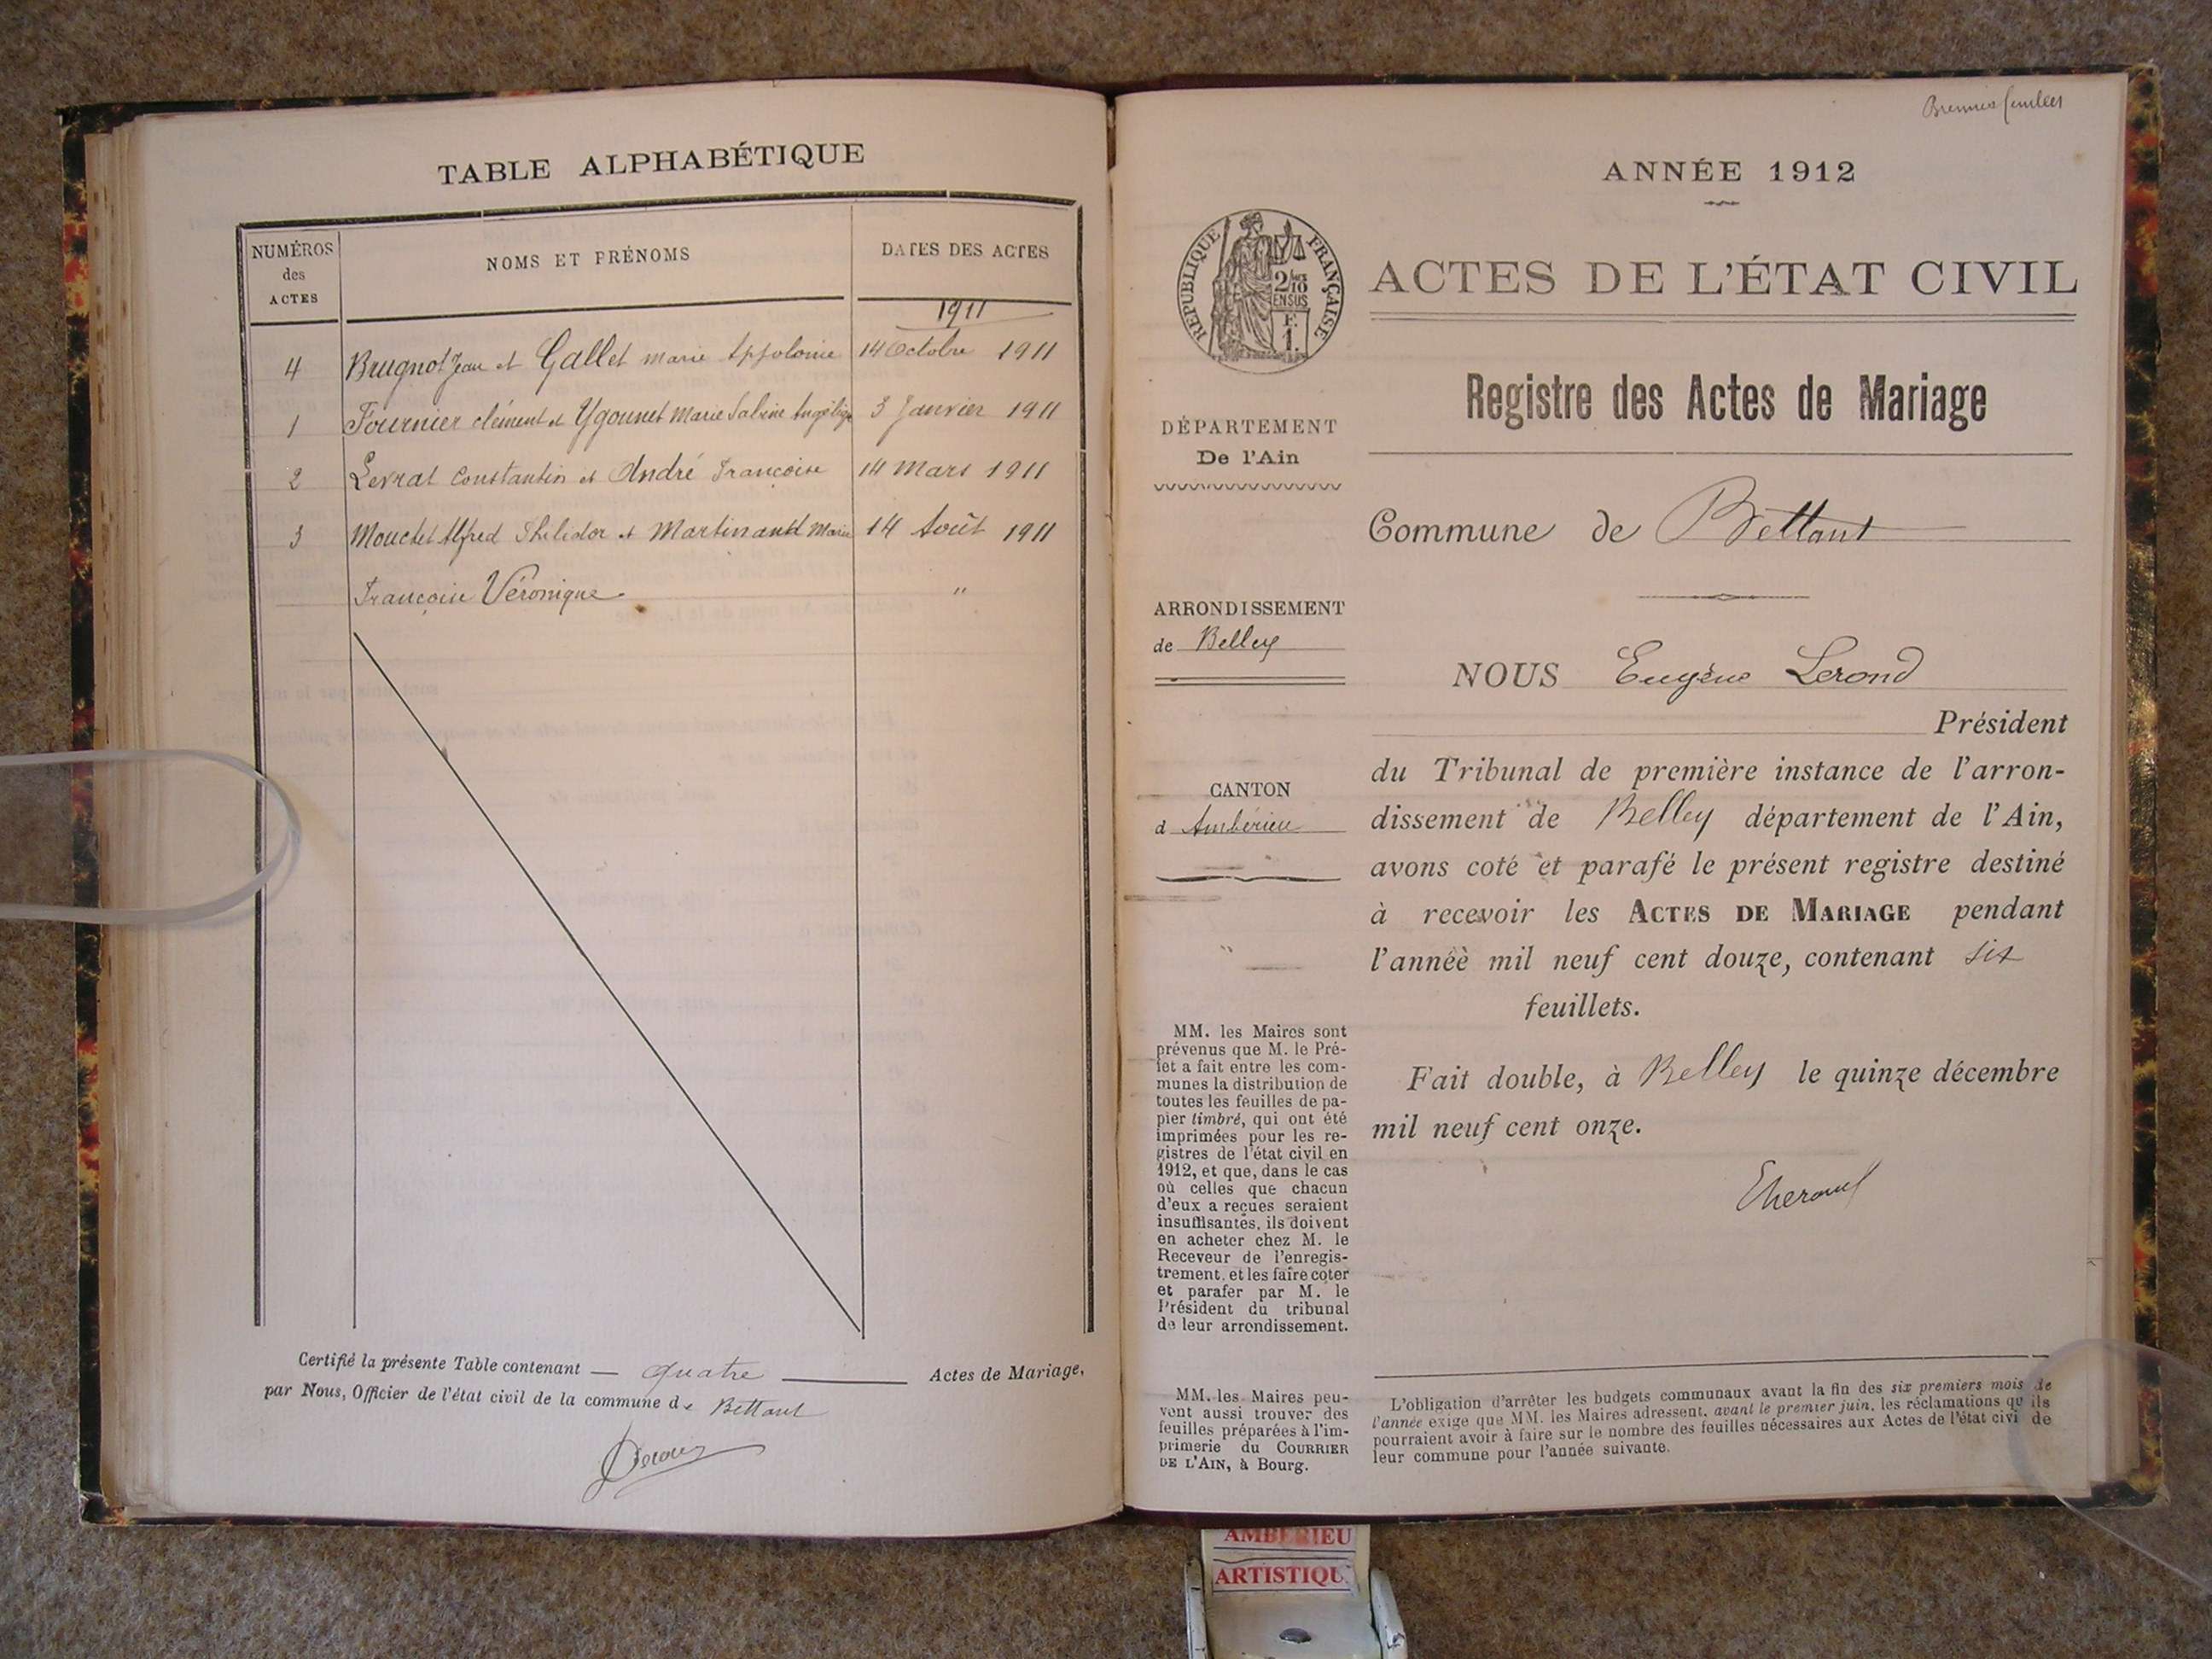 TABLE ALPHABÉTIQUE
NUMÉROS
des
ACTES
NOMS ET PRÉNOMS
DATES DES ACTES
1911
4 Brugnot Jean et Gallet marie Appolonie 14 Octobre 1911
1 Fournier clément et Ygounet Marie Sabine 3 Janvier 1911
2 Levrat Constantin et André Françoise 14 Mars 1911
3 Mouctet Alfred et Martinand Marie 14 Août 1911
Françoise Véronique "
Certifié la présente Table contenant — quatre — Actes de Mariage,
par Nous, Officier de l'état civil de la commune de Bettant
Premier feuillet
ANNÉE 1912
RÉPUBLIQUE FRANÇAISE
2/10
EN SUS
F.
1.
ACTES DE L'ÉTAT CIVIL
Registre des Actes de Mariage
DÉPARTEMENT
De l'Ain
Commune de Bettant
ARRONDISSEMENT
de Belley
NOUS Eugène Lerond
Président
du Tribunal de première instance de l'arron-
dissement de Belley département de l'Ain,
avons coté et parafé le présent registre destiné
à recevoir les ACTES DE MARIAGE pendant
l'annéè mil neuf cent douze, contenant six
feuillets.
Fait double, à Belley le quinze décembre
mil neuf cent onze.
CANTON
d Ambérieu
"
MM. les Maires sont
prévenus que M. le Pré-
fet a fait entre les com-
munes la distribution de
toutes les feuilles de pa-
pier timbré, qui ont été
imprimées pour les re-
gistres de l'état civil en
1912, et que, dans le cas
où celles que chacun
d'eux a reçues seraient
insuffisantes, ils doivent
en acheter chez M. le
Receveur de l'enregis-
trement, et les faire coter
et parafer par M. le
Président du tribunal
de leur arrondissement.
MM. les Maires peu-
vent aussi trouver des
feuilles préparées à l'im-
primerie du COURRIER
DE L'AIN, à Bourg.
L'obligation d'arrêter les budgets communaux avant la fin des six premiers mois de
l'année exige que MM. les Maires adressent, avant le premier juin, les réclamations qu ils
pourraient avoir à faire sur le nombre des feuilles nécessaires aux Actes de l'état civi de
leur commune pour l'année suivante.
AMBERIEU
ARTISTIQU